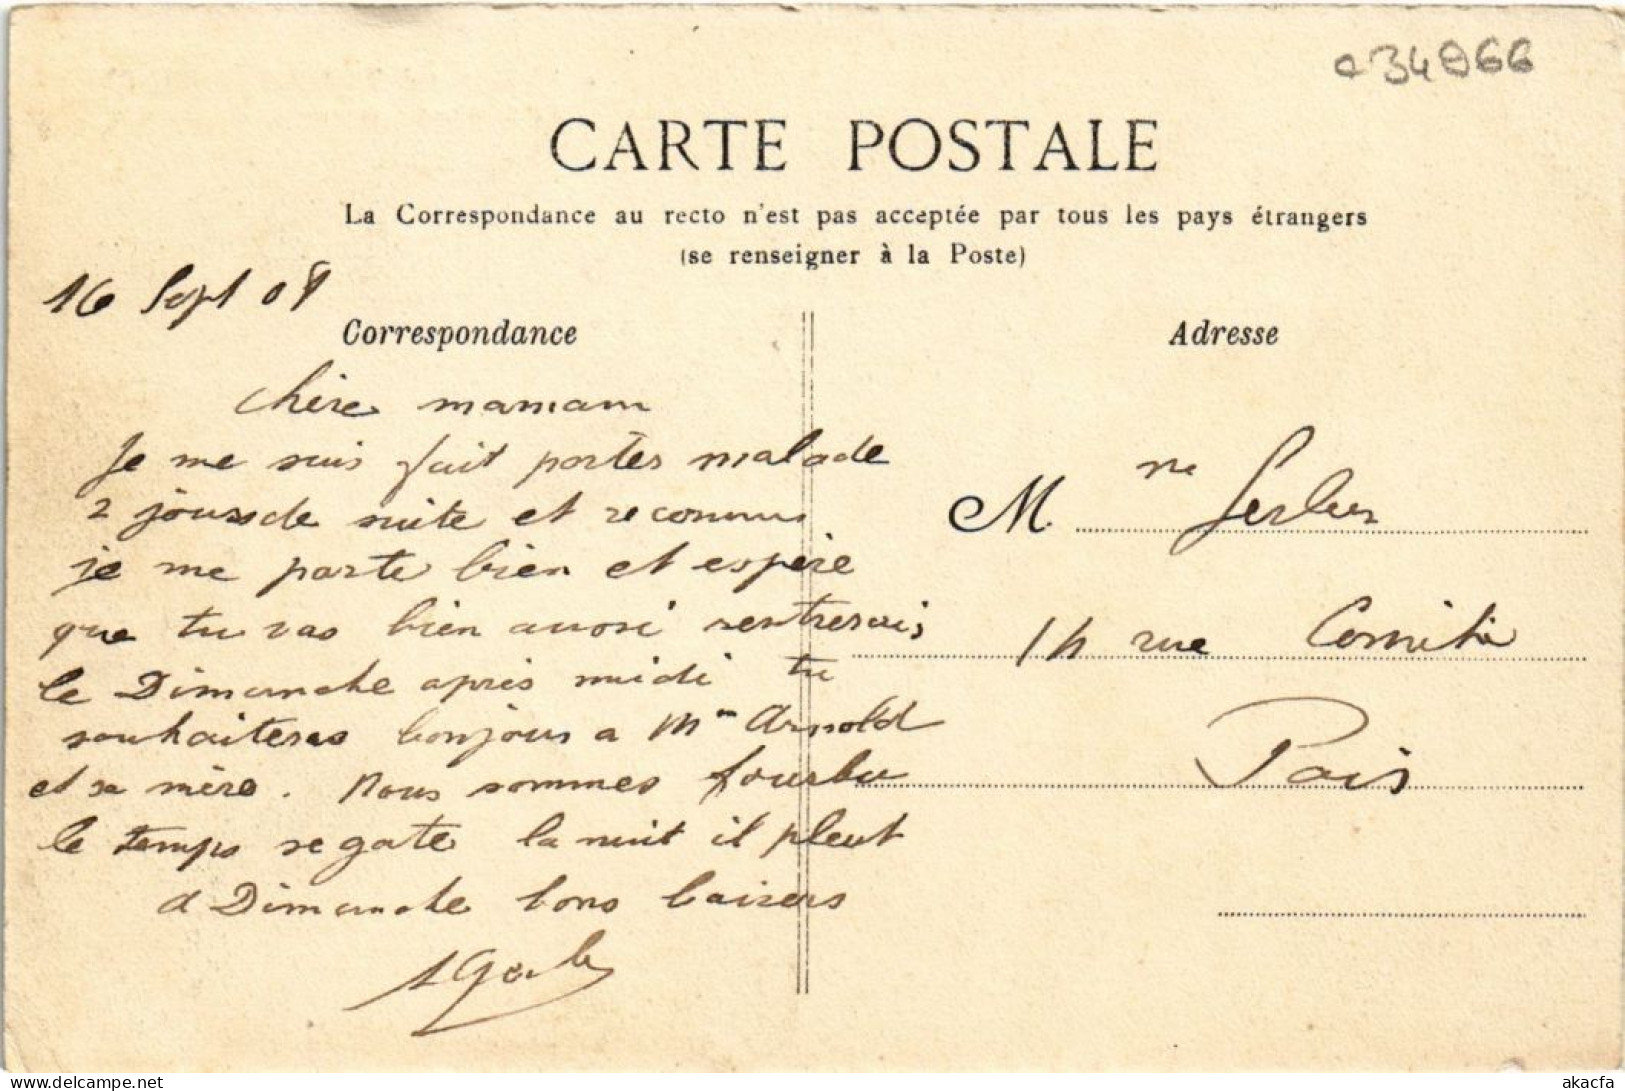 34966
CARTE POSTALE
La Correspondance au recto n'est pas acceptée par tous les pays étrangers
(se renseigner à la Poste)
16 Sept 08
Correspondance
Adresse
chère maman
Je me suis fait portér malade
2 jours de suite et reconnu
je me porte bien et espère
que tu vas bien aussi rentrerais
le Dimanche après midi tu
souhaiteras bonjour a Mme Arnold
et sa mère. Nous sommes fourbu
le temps se gate la nuit il pleut
a Dimanche bons baisers
M. me
14 rue
Paris
www.delcampe.net
akacfa